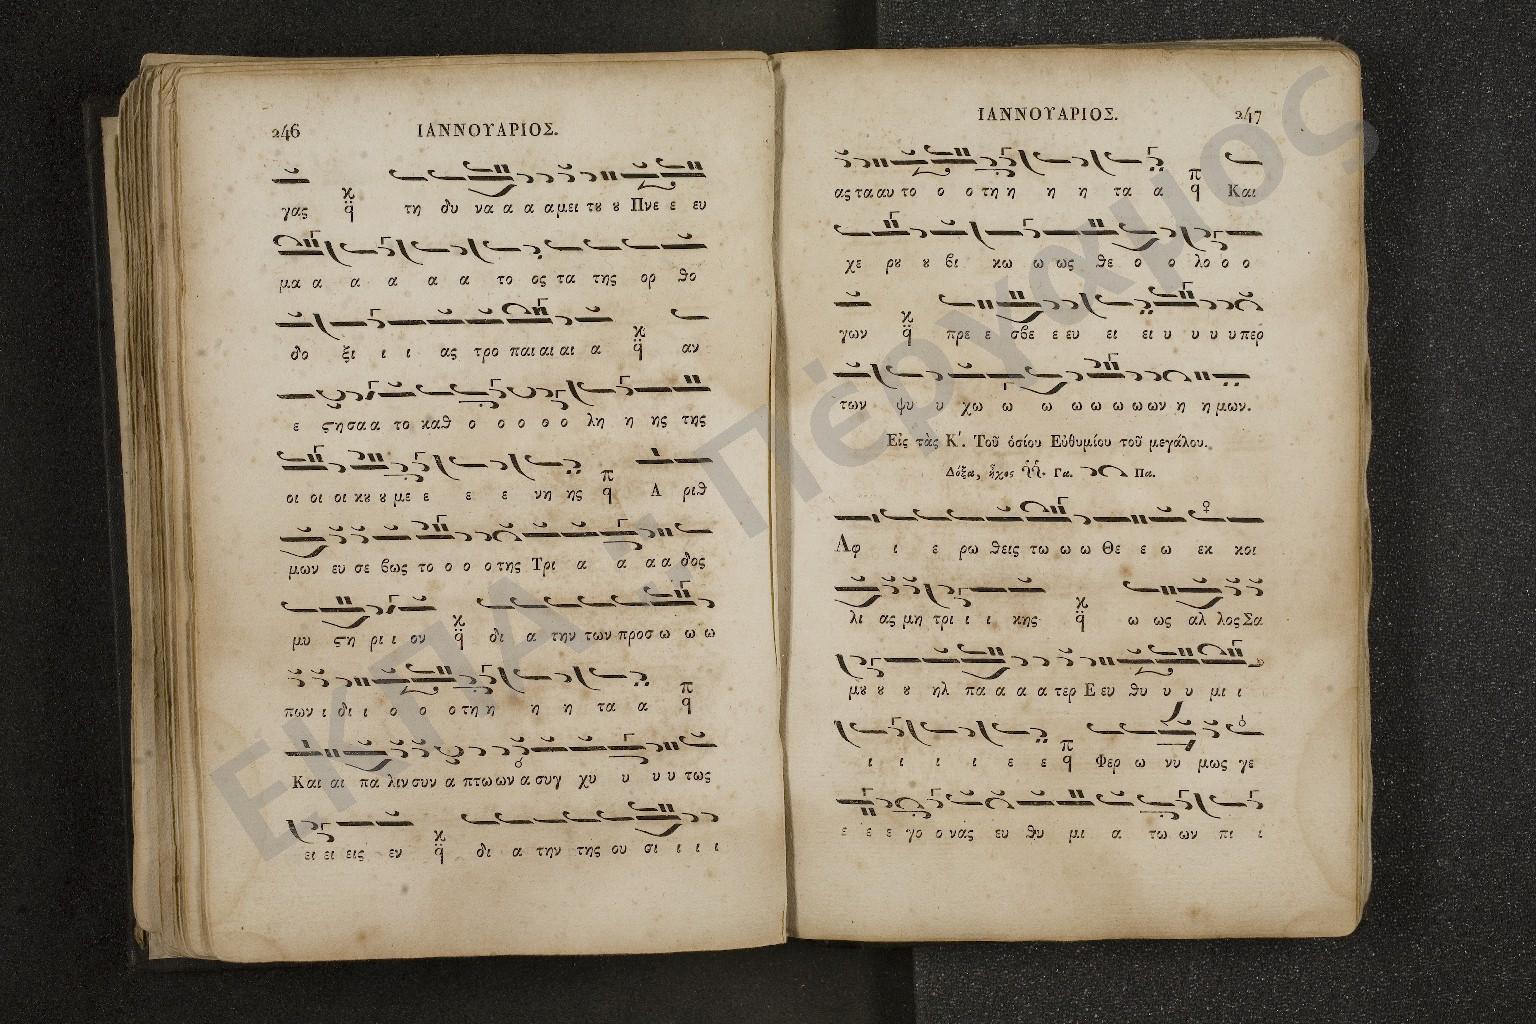 246
ΙΑΝΝΟΥΑΡΙΟΣ.
γας τη δυ να α α αμει του ου Πνε ε ευ
μα α α α α α το ος τα της ορ θο
δο ξι ι ι ας τρο παι αι αι α αν
ε ϛησα α το καθ ο ο ο ο ο λη η ης της
οι οι οι κου ου με ε ε ε νη ης Α ριθ
μων ευ σε βως το ο ο ο της Τρι α α α α δος
μυ ϛη ρι ι ον δι α την των προσ ω ω ω
πων ι δι ι ο ο ο τη η η η τα α
Και αι πα λιν συν α πτω ων α συγ χυ υ υ υ τως
ει ει εις εν δι α την της ου σι ι ι ι
ΙΑΝΝΟΥΑΡΙΟΣ.
247
ας τα αυ το ο ο τη η η η τα α Και
χε ρου ου βι κω ω ως θε ο ο λο ο ο
γων πρε ε σβε ε ευ ει ει υ υ υ υπερ
των ψυ υ χω ω ω ω ω ω ω ων η η μων.
Εἰς τὰς Κ'. Τοῦ ὁσίου Εὐθυμίου τοῦ μεγάλου.
Δόξα, ἦχος Γα. Πα.
Αφ ι ε ρω θεις τω ω ω Θε ε ω εκ κοι
λι ας μη τρι ι ι κης ω ως αλ λος Σα
μου ου ου ηλ πα α α α τερ Ε ευ θυ υ υ μι ι
ι ι ι ι ε ε Φερ ω νυ μως γε
ε ε ε γο ο νας ευ θυ μι α τω ων πι ι
ΕΚΠΑ - Πέργαμος